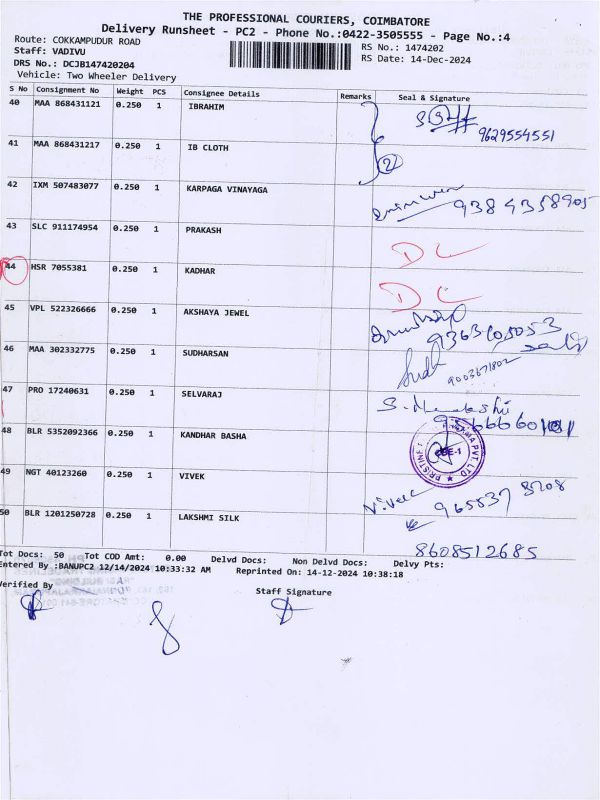 THE PROFESSIONAL COURIERS, COIMBATORE
Delivery Runsheet - PC2 - Phone No.:0422-3505555 - Page No.:4
Route: COKKAMPUDUR ROAD
Staff: VADIVU
RS No.: 1474202
DRS No.: DCJB147420204
RS Date: 14-Dec-2024
Vehicle: Two Wheeler Delivery
S No Consignment No Weight PCS Consignee Details Remarks Seal & Signature
40 MAA 868431121 0.250 1 IBRAHIM
9629554551
41 MAA 868431217 0.250 1 IB CLOTH
2
42 IXM 507483077 0.250 1 KARPAGA VINAYAGA
9384358905
43 SLC 911174954 0.250 1 PRAKASH DC
44 HSR 7055381 0.250 1 KADHAR DC
45 VPL 522326666 0.250 1 AKSHAYA JEWEL
46 MAA 302332775 0.250 1 SUDHARSAN
Sudh 9003671802
47 PRO 17240631 0.250 1 SELVARAJ
48 BLR 5352092366 0.250 1 KANDHAR BASHA
PRISTINE PVT LTD
49 NGT 40123260 0.250 1 VIVEK
50 BLR 1201250728 0.250 1 LAKSHMI SILK
8608512685
Tot Docs: 50 Tot COD Amt: 0.00 Delvd Docs: Non Delvd Docs: Delvy Pts:
Entered By :BANUPC2 12/14/2024 10:33:32 AM Reprinted On: 14-12-2024 10:38:18
Verified By
Staff Signature